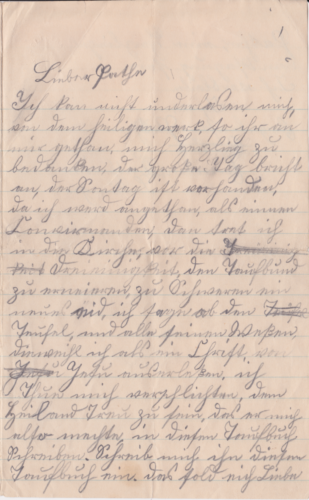 Lieber Pathe
Ich kan nicht underlasen mich,
von dem heiligen werk, so ihr an
mir gethan, mich herzlig zu
bedanken, der große Tag bricht
an, der Sontag ist vorhanden,
da ich werd angethan, als einnen
Konvirmanden, den tret ich
in der Kirche, vor die
Dreieinigkeit, den Taufbund
zu erneieren, zu Schweren ein
neues eid, ich sage ab den
Teufel, und alle seinen Wesen,
dieweihl ich als ein Christ, von
Jesu auserlesen, ich
Thue mich verpflichten, dem
Heiland Treu zu sein, das er mich
also mechte, in diesen Taufbuch
Schreiben. Schreib mich ihn diesen
Taufbuch ein. das sold eich Liebe